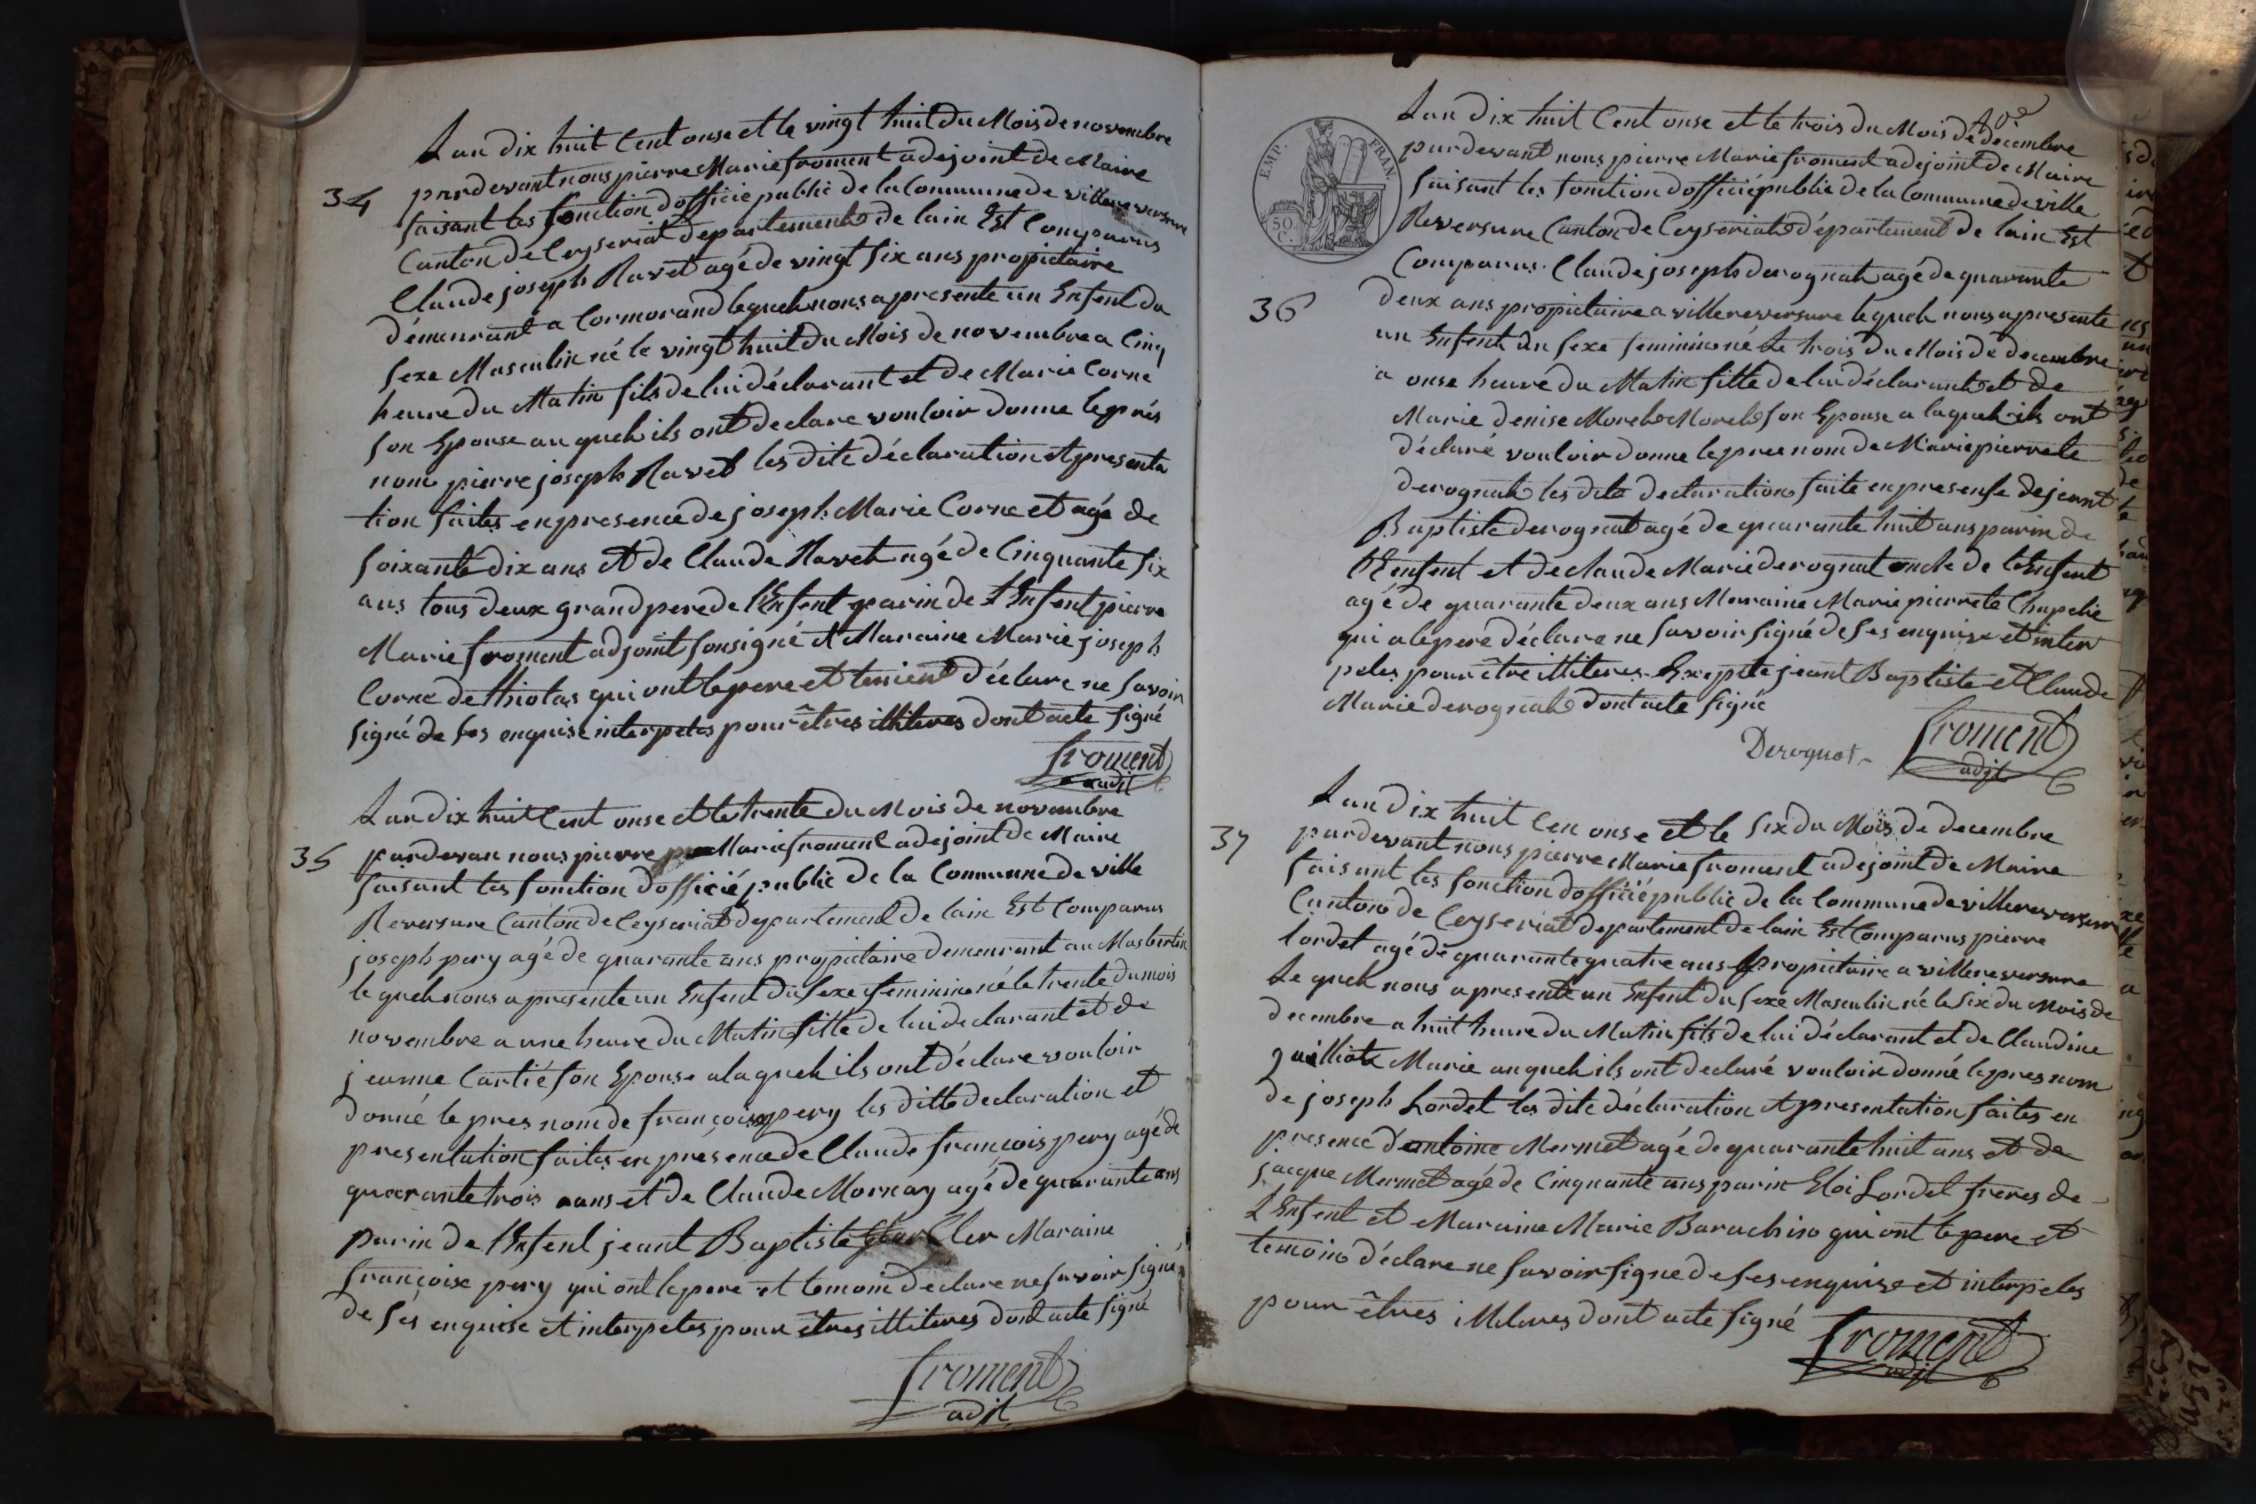 34
Lan dix huit Cent onse et le vingt huit du Mois de novembre
pardevant nous pierre Marie froment adejoint de Maire
faisant les fonction dofficié public de la Commune de villereversure
Canton de Ceyseriat departement de lain Est Comparus
Claude joseph Ravet agé de vingt six ans propietaire
démeurant a Cormorand lequel nous a presente un Enfent du
sexe Masculin né le vingt huit du Mois de novembre a Cinq
heure du Matin fils de lui déclarant et de Marie Corne
son Epouse au quel ils ont declare vouloir donne le prés
nom pierre joseph Ravet les dite déclaration et presenta
tion faites en presence de joseph Marie Corne et agé de
soixante dix ans et de Claude Ravet agé de Cinquante six
ans tous deux grand pere de l'Enfent parin de l'Enfent pierre
Marie froment adjoint sousigné et Maraine Marie joseph
Corne de qui ont le pere et temient déclare ne savoir
signé de ses enquise interpeles pour êtres illiteres dont acte signé
froment
adjt
35
Lan dix huit Cent onse et le trente du Mois de novembre
pardevan nous pierre Marie froment adejoint de Maire
faisant les fonction dofficié public de la Commune de ville
Reversure Canton de Ceyseriat departement de lain Est Comparus
joseph pery agé de quarante ans propietaire demeurant au Masbertin
le quel nous a presente un Enfent du sexe feminin né le trente du mois
novembre a une heure du Matin fille de lui declarant et de
jeanne Cartié son Epouse a la quel ils ont déclare vouloir
donné le pres nom de françoise pery les ditte declaration et
presentation faites en présence de Claude francois pery agé de
quarante trois ans et de Claude Mornay agé de quarante ans
parin de l'Enfent jeant Baptiste Maraine
françoise pery qui ont le pere et temoin declare ne savoir signé
de ses enquise et interpeles pour êtres illiteres dont acte signé
froment
adjt
EMP. FRAN.
50 C.
40e
36
Lan dix huit Cent onse et le trois du Mois de decembre
pardevant nous pierre Marie froment adejoint de Maire
faisant les fonction dofficié public de la Commune de ville
Reversure Canton de Ceyseriat département de lain Est
Comparus Claude joseph derognat agé de quarante
deux ans propietaire a villereversure le quel nous a presente
un Enfent du sexe feminin né le trois du Mois de decembre
a onse heure du Matin fille de lui déclarant et de
Marie denise Morel Morel son Epouse a la quel ils ont
déclaré vouloir donne le pre nom de Marie pierrete
derognat les dite declaration faite en presense de jeant
Baptiste derognat agé de quarante huit ans parin de
l'Enfent et de claude Marie derognat oncle de l'Enfent
agé de quarante deux ans Marraine Marie pierrete Chapelie
qui a le pere déclare ne savoir signé de ses enquise et inter
peles pour être illiteres Exepte jeant Baptiste et Claude
Marie derognat dont acte signé
Derognat
froment
adjt
37
Lan dix huit Cen onse et le six du Mois de decembre
pardevant nous pierre Marie froment adejoint de Maire
faisant les fonction dofficié public de la Commune de villereversure
Canton de Ceyseriat departement de lain Est Comparus pierre
lordet agé de quarante quatre ans propietaire a villereversure
le quel nous a presente un Enfent du sexe Masculin né le six du Mois de
decembre a huit heure du Matin fils de lui déclarant et de Claudine
Marie au quel ils ont declaré vouloir donné le pres nom
de joseph Lordet les dite déclaration et presentation faites en
presence d'antoine Mermet agé de quarante huit ans et de
jacque Mermet agé de Cinquante ans parin Eloi Lordet freres de
l'Enfent et Maraine Marie qui ont le pere et
temoin déclare ne savoir signe de ses enquise et interpeles
pour êtres illiteres dont acte signé
froment
adjt